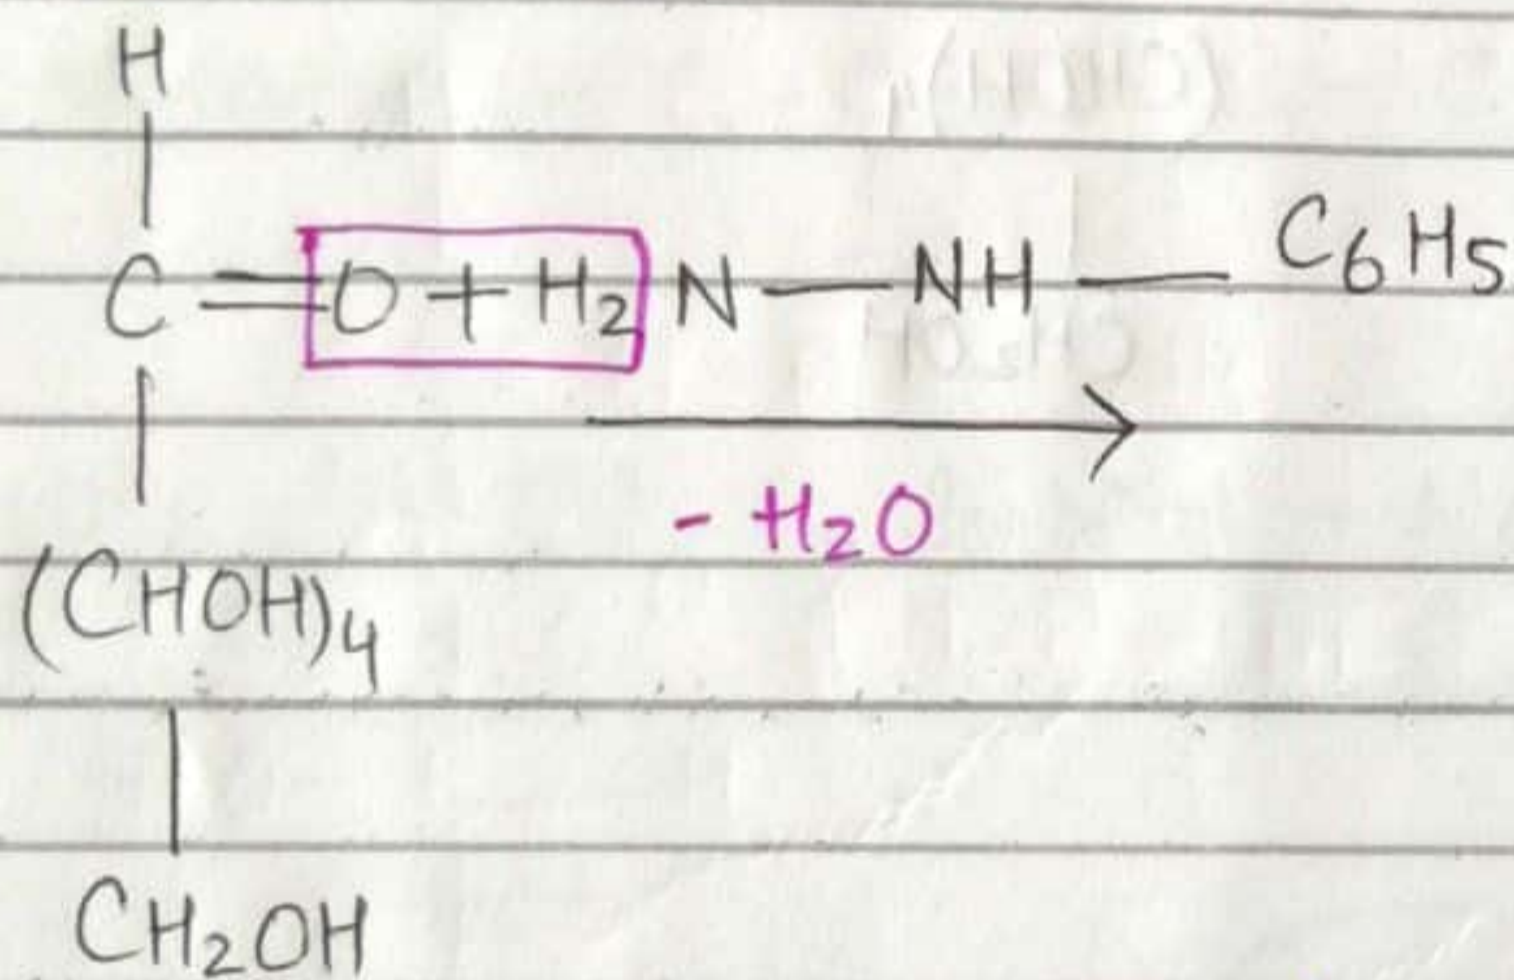 H
|
C=O+H₂N—NH—C₆H₅
|
- H₂O
(CHOH)₄
|
CH₂OH